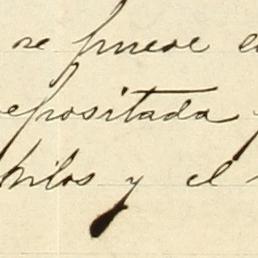 se puede e
epositada
kilos y el